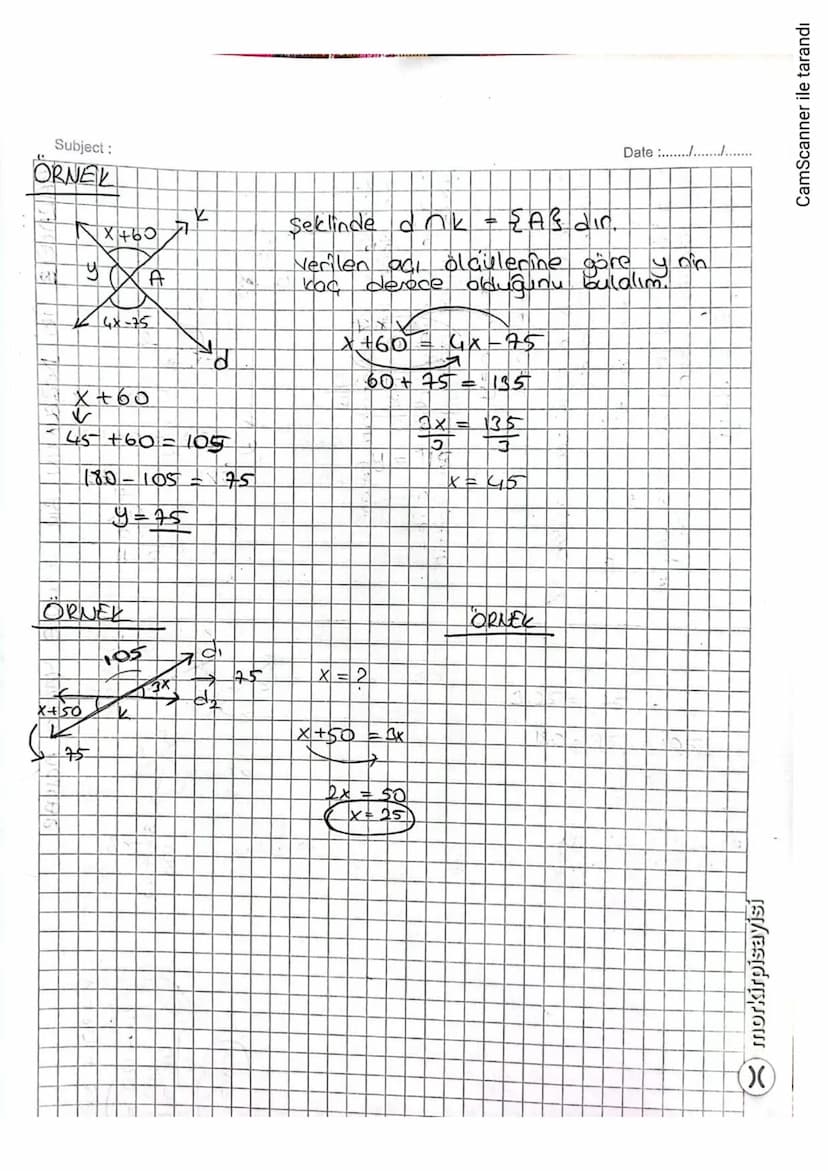 CamScanner ile tarandı
Subject :
Date :......./......./.......
ÖRNEK
x+60
k
y
A
4x-75
d
Şeklinde d ∩ k = {A} dır.
verilen açı ölçülerine göre y nin
kaç derece olduğunu bulalım.
x+60 = 4x-75
60+75 = 135
3x = 135
3 3
x = 45
x+60
45+60 = 105
180-105 = 75
y = 75
ÖRNEK
105
d1
3x → 75
d2
x+50
k
75
x = ?
x+50 = 3x
2x = 50
x = 25
ÖRNEK
morkirpisayisi